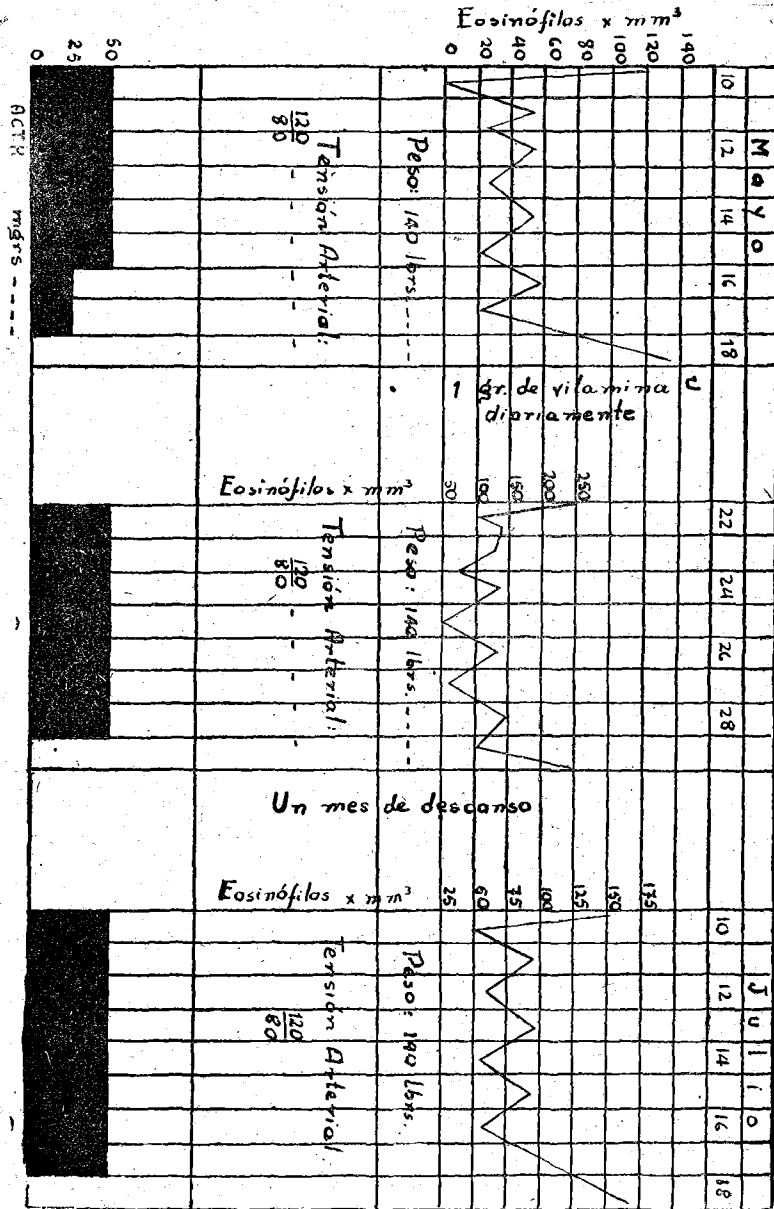 Eosinófilos x mm³
0 20 40 60 80 100 120 140
Mayo
10 12 14 16 18
Peso: 140 lbrs. - - - - -
Tensión Arterial:
120
80
- - - - -
0 25 50
ACTH mgrs - - - -
1 gr. de vitamina C
diariamente
Eosinófilos x mm³
50 100 150 200 250
22 24 26 28
Peso: 140 lbrs. - - - - -
Tensión Arterial:
120
80
- - - - -
Un mes de descanso
Eosinófilos x mm³
25 50 75 100 125 150 175
Julio
10 12 14 16 18
Peso: 140 lbrs.
Tensión Arterial
120
80